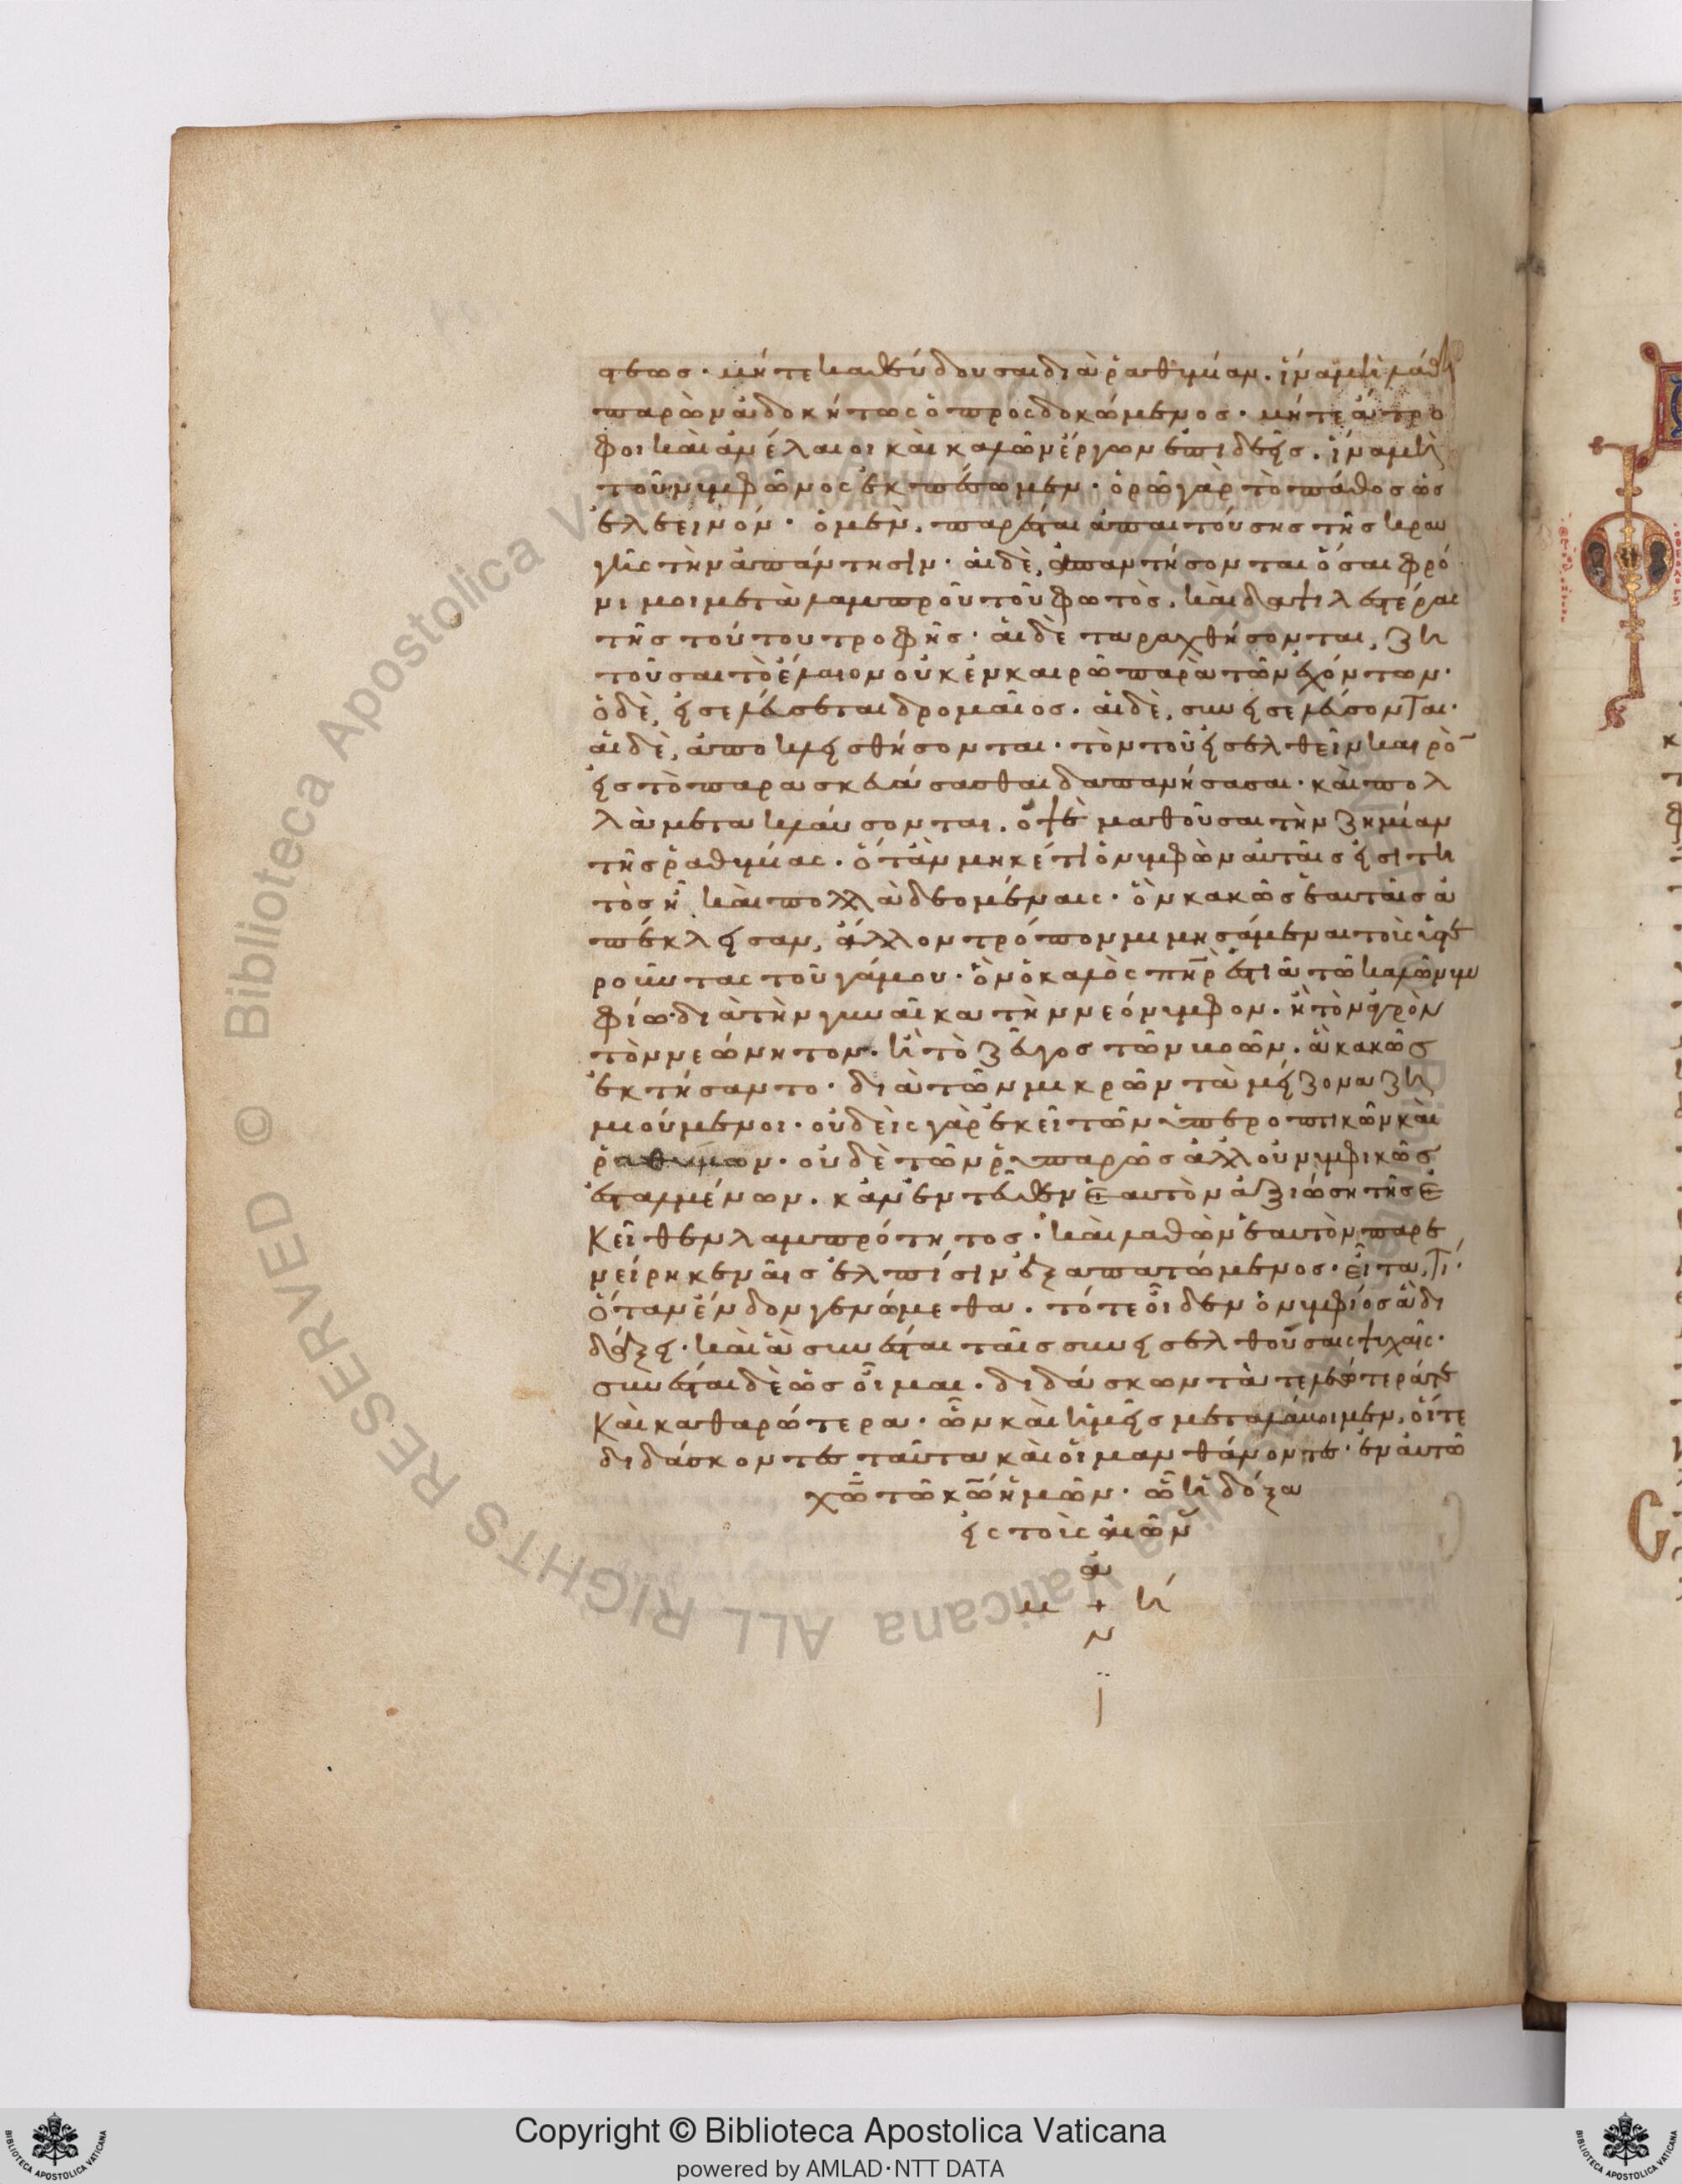 φεως · μήτε καθεύδουσαι διὰ ῥαθυμίαν. ἵνα μὴ λάθῃ
παρὼν ἀδοκήτως ὁ προσδοκώμενος · μήτε ἄτρο
φοι καὶ ἀνέλαιοι καὶ καλῶν ἔργων ἐπιδεεῖς. ἵνα μὴ
τοῦ νυμφῶνος ἐκπέσωμεν · ὁρῶ γὰρ τὸ πάθος ὡς
ἐλεεινόν · ὁ μὲν, παρέσται ἀπαιτούσης τῆς κραυ
γῆς τὴν ἀπάντησιν · αἱ δὲ, ἀπαντήσονται ὅσαι φρό
νιμοι μετὰ λαμπροῦ τοῦ φωτὸς, καὶ δαψιλεστέρας
τῆς τούτου τροφῆς · αἱ δὲ ταραχθήσονται, ζη
τοῦσαι τὸ ἔλαιον οὐκ ἐν καιρῶ παρὰ τῶν ἐχόντων ·
ὁ δὲ, εἰσελεύσεται δρομαῖος. αἱ δὲ, συνεισελεύσονται ·
αἱ δὲ, ἀποκλεισθήσονται · τὸν τοῦ εἰσελθεῖν καιρὸ̄
εἰς τὸ παρασκευάσασθαι δαπανήσασαι · καὶ πολ
λὰ μετακλαύσονται. ὀψὲ μαθοῦσαι τὴν ζημίαν
τῆς ῥαθυμίας. ὅτὰν μηκέτι ὁ νυμφὼν αὐταῖς εἰσιτη
τὸς ἦ καὶ πολλὰ δεομέναις · ὃν κακῶς ἑαυταῖς ἀ
πέκλεισαν, ἄλλον τρόπον μιμησάμεναι τοὺς ὑστε
ροῦντας τοῦ γάμου · ὃν ὁ καλὸς πη̅ρ ἑστιᾶ τῶ καλῶ νυμ
φίω · διὰ τὴν γυναῖκα τὴν νεόνυμφον. ἢ τὸν ἀγρὸν
τὸν νεώνητον. ἢ τὸ ζεῦγος τῶν βοῶν. ἃ κακῶς
ἐκτήσαντο · διὰ τῶν μικρῶν τὰ μείζονα ζη
μιούμενοι · οὐδεὶς γὰρ ἐκεῖ τῶν ὑπεροπτικῶν καὶ
ῥαθύμων · οὐδὲ τῶν ῥυπαρῶς ἀλλ οὐ νυμφικῶς
ἐσταλμένων. κἂν ἐντεῦθεν ἑαυτὸν ἀξιώση τῆς ἐ
κεῖθεν λαμπρότητος · καὶ λαθὼν ἑαυτὸν παρε
νείρη κεναῖς ἐλπίσιν ἐξαπατώμενος · εἶτα, τί.
ὅταν ἔνδον γενώμεθα. τότε οἶδεν ὁ νυμφίος ἃ δι
δάξει · καὶ ἃ συνέσται ταῖς συνεισελθούσαις ψυχαῖς ·
συνέσται δὲ ὡς οἶμαι. διδάσκων τὰ τελεώτερά τε
καὶ καθαρώτερα · ὧν καὶ ἡμεῖς μεταλάβοιμεν, οἵ τε
διδάσκοντες ταῦτα καὶ οἱ μανθάνοντες · ἐν αὐτῶ
χω̅ τῶ κω̅ ἡμῶν · ὧ ἡ δόξα
εἰς τοὺς αἰῶν
ἀ
μ + ή
ν
Copyright © Biblioteca Apostolica Vaticana
powered by AMLAD·NTT DATA